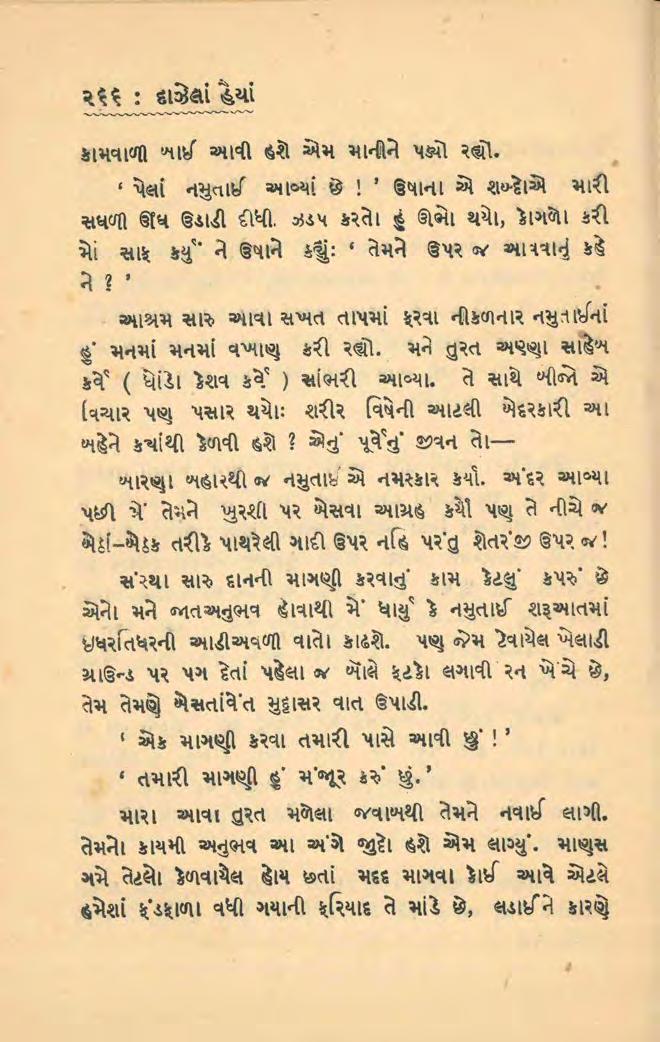 ૨૬૬ : દાઝેલાં હૈયાં
કામવાળી બાઈ આવી હશે એમ માનીને પડ્યો રહ્યો.
‘ પેલાં નમુતાઈ આવ્યાં છે ! ’ ઉષાના એ શબ્દોએ મારી
સઘળી ઊંઘ ઉડાડી દીધી. ઝડપ કરતો હું ઊભો થયો, કોગળો કરી
મોં સાફ કર્યું ને ઉષાને કહ્યું: ‘ તેમને ઉપર જ આવવાનું કહે
ને ? ’
આશ્રમ સારુ આવા સખત તાપમાં ફરવા નીકળનાર નમુતાઈનાં
હું મનમાં મનમાં વખાણ કરી રહ્યો. મને તુરત અણ્ણા સાહેબ
કર્વે ( ધોંડો કેશવ કર્વે ) સાંભરી આવ્યા. તે સાથે બીજો એ
વિચાર પણ પસાર થયો: શરીર વિષેની આટલી બેદરકારી આ
બહેને ક્યાંથી કેળવી હશે ? એનું પૂર્વેનું જીવન તો—
બારણા બહારથી જ નમુતાઈ એ નમસ્કાર કર્યા. અંદર આવ્યા
પછી મેં તેમને ખુરશી પર બેસવા આગ્રહ કર્યો પણ તે નીચે જ
બેઠાં–બેઠક તરીકે પાથરેલી ગાદી ઉપર નહિ પરંતુ શેતરંજી ઉપર જ!
સંસ્થા સારુ દાનની માગણી કરવાનું કામ કેટલું કપરું છે
એનો મને જાતઅનુભવ હોવાથી મેં ધાર્યું કે નમુતાઈ શરૂઆતમાં
ઇધરતિધરની આડીઅવળી વાતો કાઢશે. પણ જેમ ટેવાયેલ ખેલાડી
ગ્રાઉન્ડ પર પગ દેતાં પહેલા જ બૉલે ફટકો લગાવી રન ખેંચે છે,
તેમ તેમણે બેસતાંવેંત મુદ્દાસર વાત ઉપાડી.
‘ એક માગણી કરવા તમારી પાસે આવી છું !’
‘ તમારી માગણી હું મંજૂર કરું છું.’
મારા આવા તુરત મળેલા જવાબથી તેમને નવાઈ લાગી.
તેમનો કાયમી અનુભવ આ અંગે જુદો હશે એમ લાગ્યું. માણસ
ગમે તેટલો કેળવાયેલ હોય છતાં મદદ માગવા કોઈ આવે એટલે
હમેશાં ફંડફાળા વધી ગયાની ફરિયાદ તે માંડે છે, લડાઈને કારણે